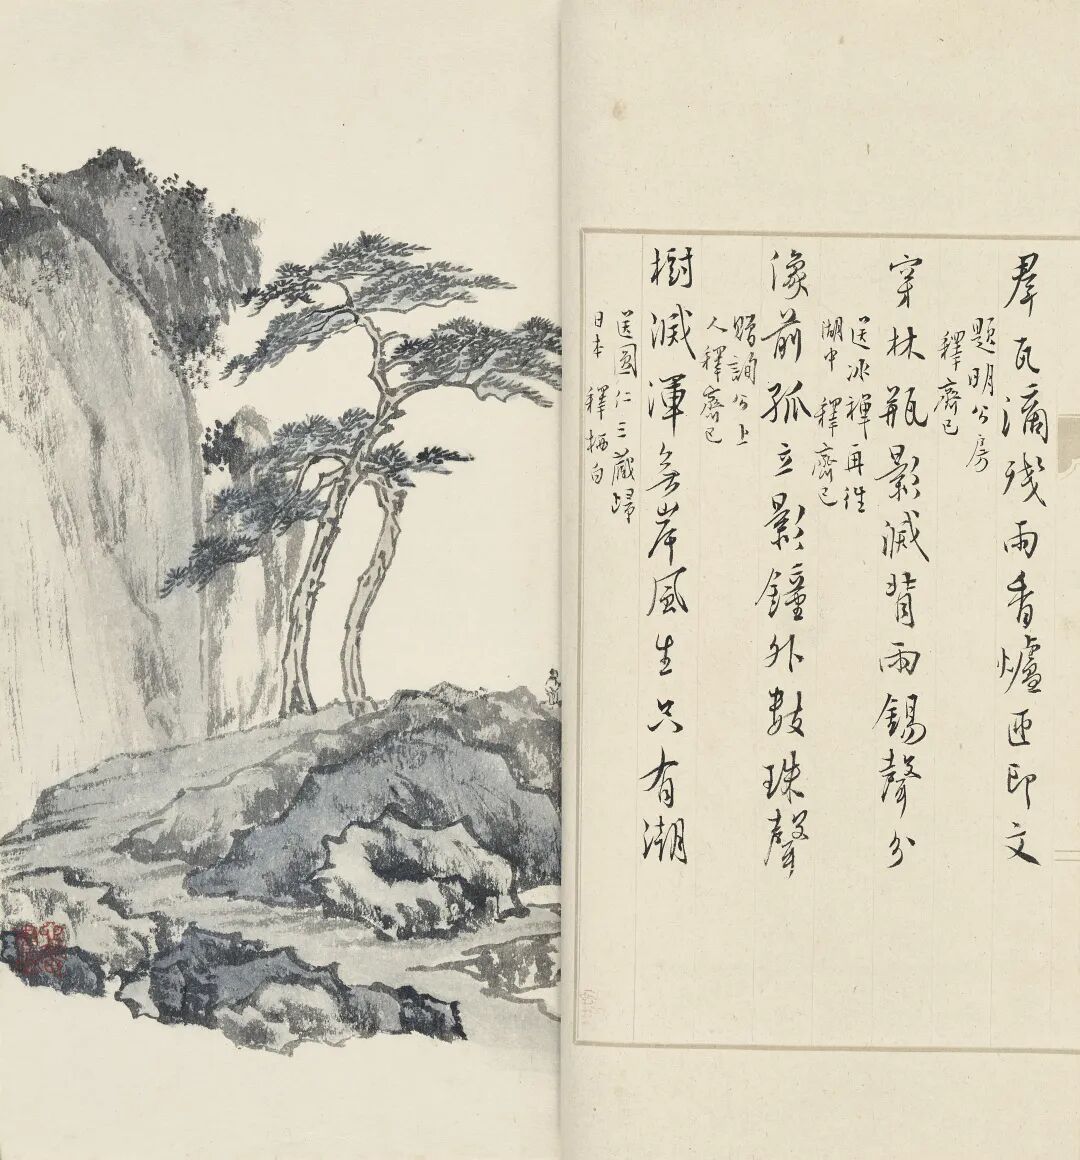 羣瓦滴残雨香爐匝印文
題明公房
釋齊已
穿林瓶影滅背雨錫聲分
送冰禪再往
湖中 釋齊已
像前孤立影鐘外數珠聲
贈詢公上
人 釋齊已
樹滅渾無岸風生只有潮
送圓仁三藏歸
日本 釋栖白